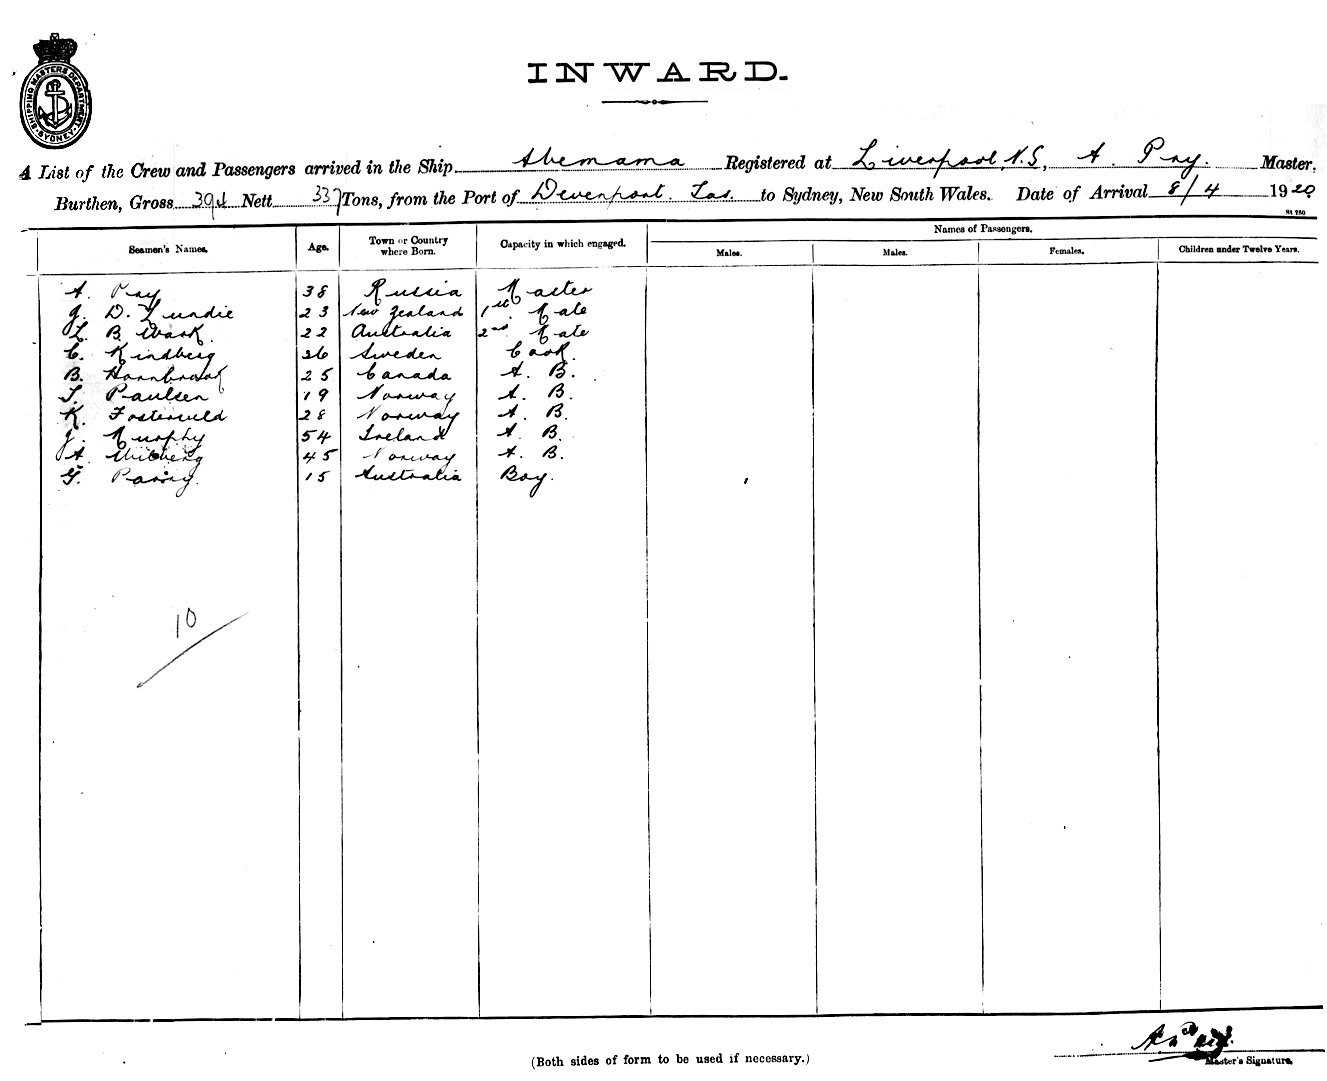 SHIPPING MASTERS DEPARTMENT SYDNEY
INWARD.
A List of the Crew and Passengers arrived in the Ship Abemama Registered at Liverpool, N.S, A. Pay. Master,
Burthen, Gross Nett 337 Tons, from the Port of Devenport. Tas. to Sydney, New South Wales. Date of Arrival 8/4 1920
St 250
Seamen's Names. Age. Town or Country where Born. Capacity in which engaged. Names of Passengers.
Males. Males. Females. Children under Twelve Years.
A. Pay 38 Russia Master
J. D. Lundie 23 New Zealand 1st. Mate
L. B. Wark. 22 Australia 2nd. Mate
C. Kindberg 26 Sweden Cook.
B. Hornbrook 25 Canada A. B.
Paulsen 19 Norway A. B.
K. 28 Norway A. B.
J. Murphy 54 Ireland A. B.
A. 45 Norway A. B.
G. Parry. 15 Australia Boy.
10
A. Pay.
Master's Signature.
(Both sides of form to be used if necessary.)